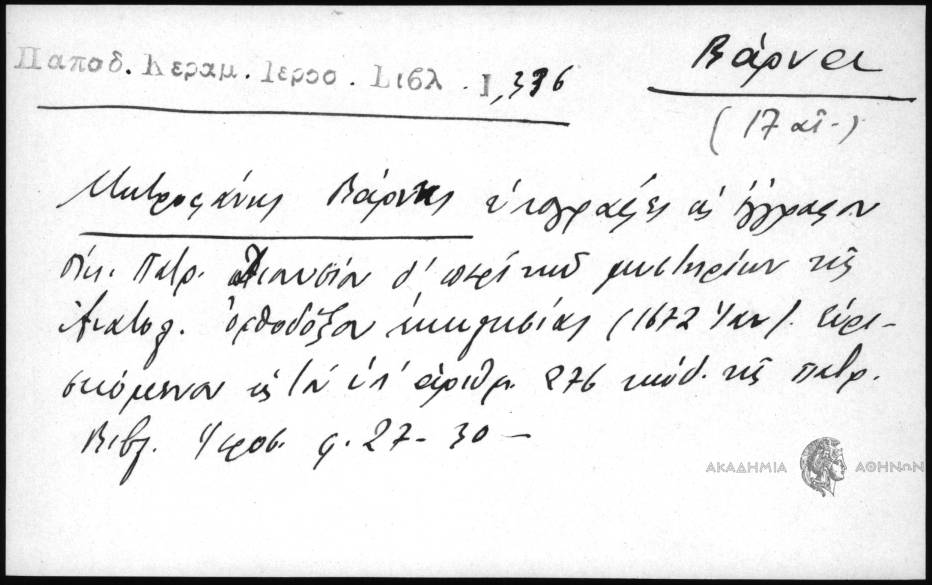 Παποδ. Κεραμ. Ιεροσ. Βιβλ. I, 376
Βάρνα
(17 αἰ.)
Μητροφάνης Βάρνης ὑπογράφει εἰς ἔγγραφον
Οἰκ. Πατρ. Διονυσίου δ' περὶ τῶν μυστηρίων τῆς
Ἀνατολ. ὀρθοδόξου ἐκκλησίας (1672 Ἰαν). Εὑρι-
σκόμενον εἰς τὸν ὑπ' ἀριθμ. 276 κώδ. τῆς πατρ.
Βιβλ. Ἱεροσ. φ. 27-30 —
ΑΚΑΔΗΜΙΑ ΑΘΗΝΩΝ